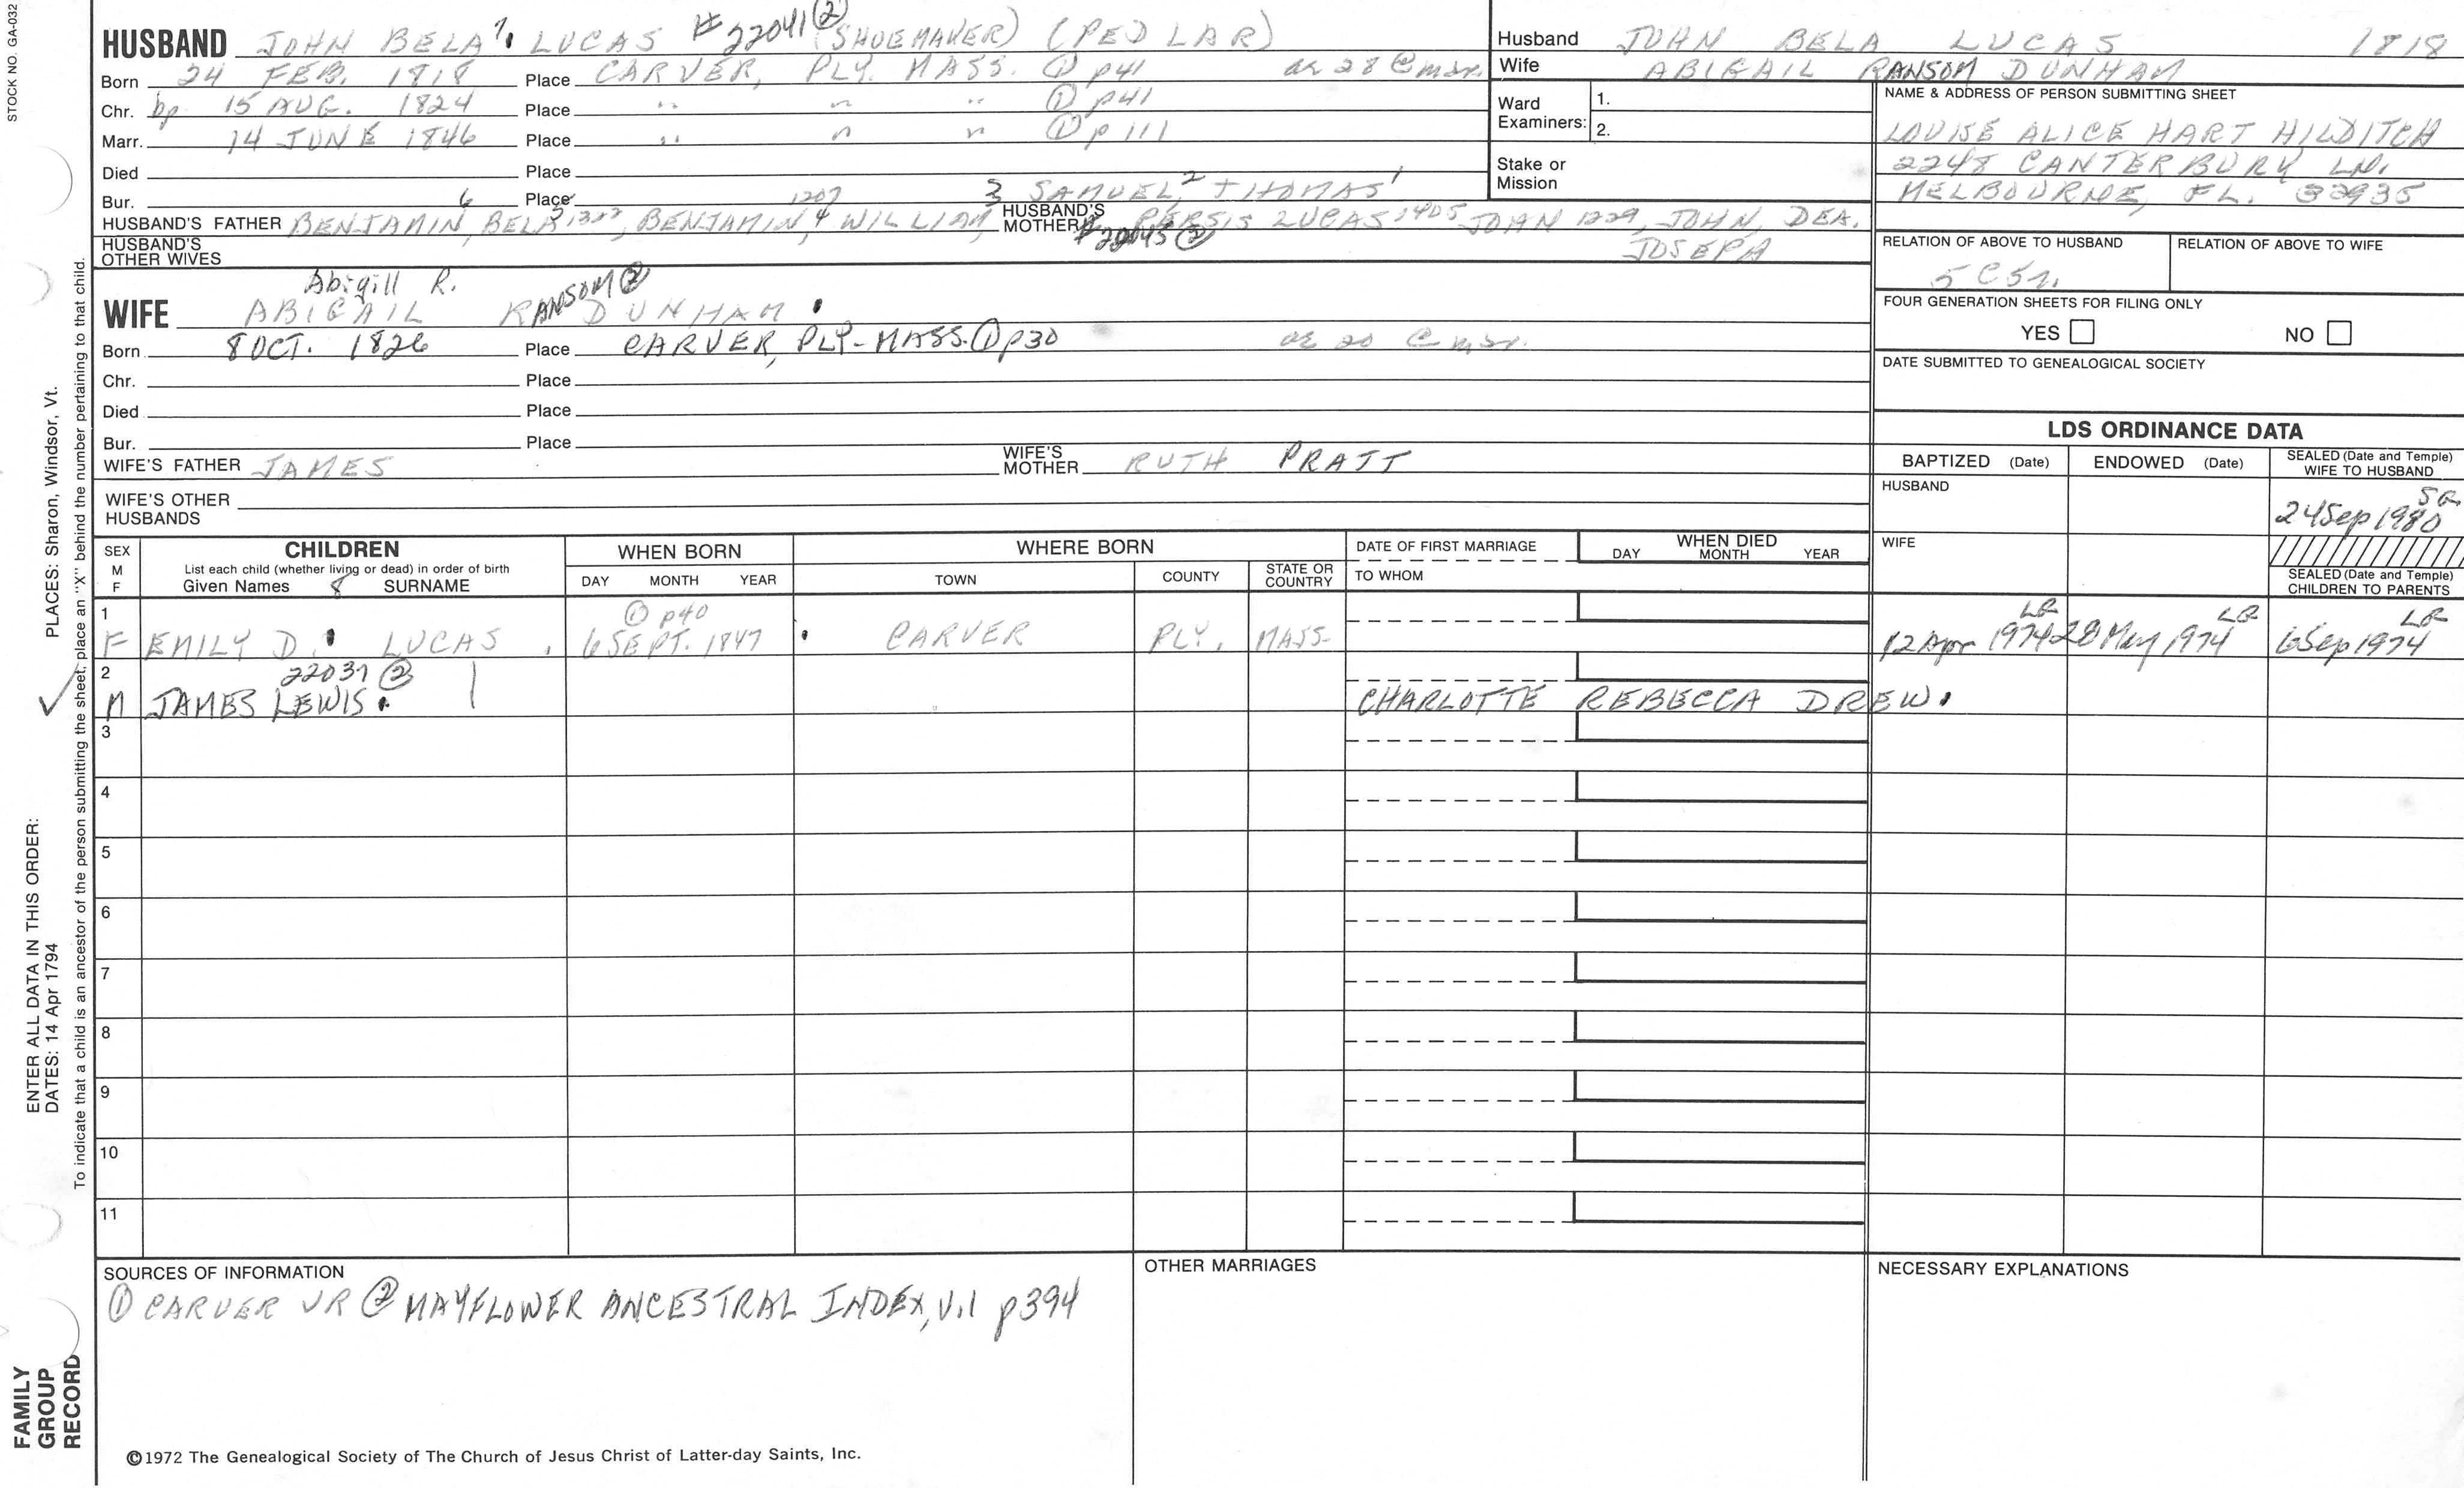 STOCK NO. GA-032
HUSBAND JOHN BELA 7. LUCAS # 22041 ② (SHOEMAKER) (PEDLAR)
Born 24 FEB. 1818 Place CARVER, PLY. MASS. ① p41 ae 28 @ mar.
Chr. bp 15 AUG. 1824 Place " " " ① p41
Marr. 14 JUNE 1846 Place " " " ① p111
Died Place
Bur. Place
HUSBAND'S FATHER BENJAMIN, 6 BELA 5 BENJAMIN, 1207 4 WILLIAM, 3 SAMUEL, 2 THOMAS 1
HUSBAND'S MOTHER PERSIS LUCAS 1405 JOHN 1229, JOHN, DEA. JOSEPH
#22045 ②
HUSBAND'S OTHER WIVES
Abigill R.
WIFE ABIGAIL RANSOM ② DUNHAM
Born 8 OCT. 1826 Place CARVER, PLY- MASS. ① p30 ae 20 @ mar.
Chr. Place
Died Place
Bur. Place
WIFE'S FATHER JAMES WIFE'S MOTHER RUTH PRATT
WIFE'S OTHER HUSBANDS
Husband JOHN BELA LUCAS 1818
Wife ABIGAIL RANSOM DUNHAM
Ward Examiners: 1.
2.
Stake or Mission
NAME & ADDRESS OF PERSON SUBMITTING SHEET
LOUISE ALICE HART HILDITCH
2248 CANTERBURY LN.
MELBOURNE, FL. 32935
RELATION OF ABOVE TO HUSBAND RELATION OF ABOVE TO WIFE
5 C 5r.
FOUR GENERATION SHEETS FOR FILING ONLY
YES NO
DATE SUBMITTED TO GENEALOGICAL SOCIETY
LDS ORDINANCE DATA
BAPTIZED (Date) ENDOWED (Date) SEALED (Date and Temple) WIFE TO HUSBAND
HUSBAND 24 Sep 1980
WIFE
SEALED (Date and Temple) CHILDREN TO PARENTS
SEX M F CHILDREN WHEN BORN WHERE BORN DATE OF FIRST MARRIAGE WHEN DIED
List each child (whether living or dead) in order of birth
Given Names 8 SURNAME DAY MONTH YEAR TOWN COUNTY STATE OR COUNTRY TO WHOM DAY MONTH YEAR
1 ① p40 LR LR LR
F EMILY D. LUCAS 6 SEPT. 1847 CARVER PLY. MASS. 12 Apr 1974 28 May 1974 6 Sep 1974
2 22037 ②
M JAMES LEWIS CHARLOTTE REBECCA DREW
3
4
5
6
7
8
9
10
11
SOURCES OF INFORMATION
① CARVER VR ② MAYFLOWER ANCESTRAL INDEX, V.1 p394
OTHER MARRIAGES
NECESSARY EXPLANATIONS
©1972 The Genealogical Society of The Church of Jesus Christ of Latter-day Saints, Inc.
PLACES: Sharon, Windsor, Vt.
To indicate that a child is an ancestor of the person submitting the sheet, place an "X" behind the number pertaining to that child.
ENTER ALL DATA IN THIS ORDER:
DATES: 14 Apr 1794
FAMILY GROUP RECORD